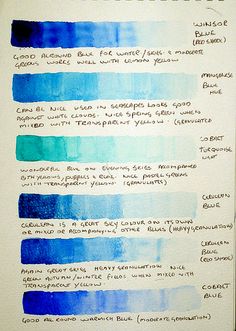 WINSOR
BLUE
(RED SHADE)
GOOD ALROUND BLUE FOR WATER/SKIES & MODERATE
GREENS WORKS WELL WITH LEMON YELLOW
MANGANESE
BLUE
HUE
CAN BE NICE USED IN SEASCAPES LOOKS GOOD
AGAINST WHITE CLOUDS. NICE SPRING GREEN WHEN
MIXED WITH TRANSPARENT YELLOW. (GRANULATES)
COBALT
TURQUOISE
LIGHT
WONDERFUL BLUE ON EVENING SKIES ACCOMPANIED
BY YELLOWS, PURPLES & NICE PASTEL GREENS
WITH TRANSPARENT YELLOW (GRANULATES)
CERULEAN
BLUE
CERULEAN IS A GREAT SKY COLOUR ON ITS OWN
OR MIXED OR ACCOMPANYING OTHER BLUES (HEAVY GRANULATION)
CERULEAN
BLUE
(RED SHADE)
AGAIN GREAT SKIES HEAVY GRANULATION NICE
GREEN AUTUMN/WINTER FIELDS WHEN MIXED WITH
TRANSPARENT YELLOW
COBALT
BLUE
GOOD ALROUND WARMISH BLUE (MODERATE GRANULATION)